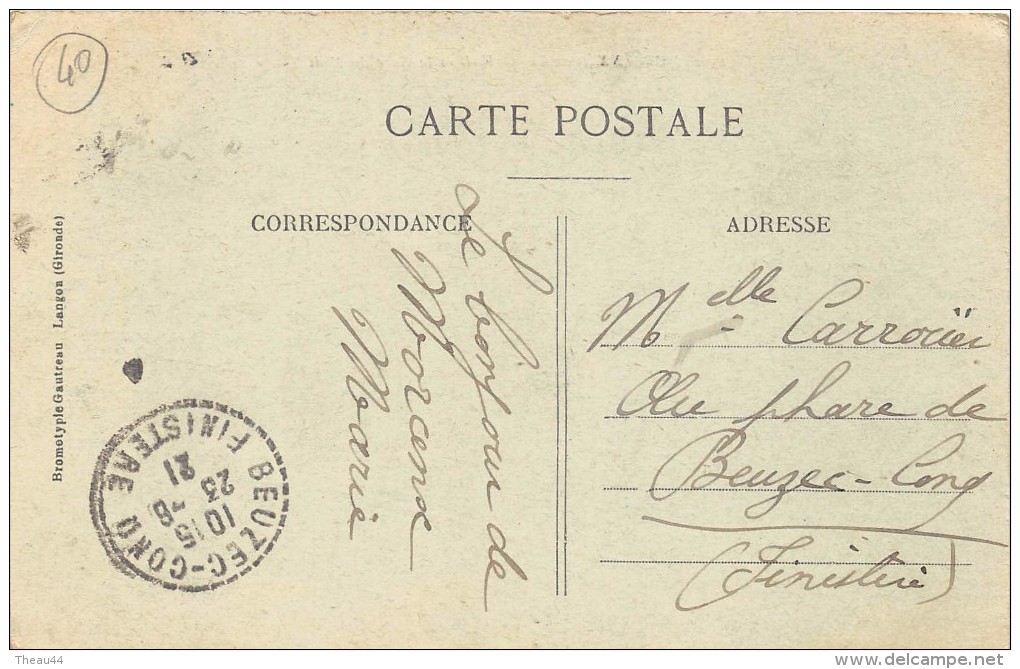 40
CARTE POSTALE
CORRESPONDANCE
ADRESSE
Le bonjour de
Morcenx
Marie
Melle Carroüer
Au phare de
Beuzec-Conq
(Finistère)
Bromotypie Gautreau Langon (Gironde)
BEUZEC-CONQ
10 15
23 -8
21
FINISTERE
Theau44
delcampe.net